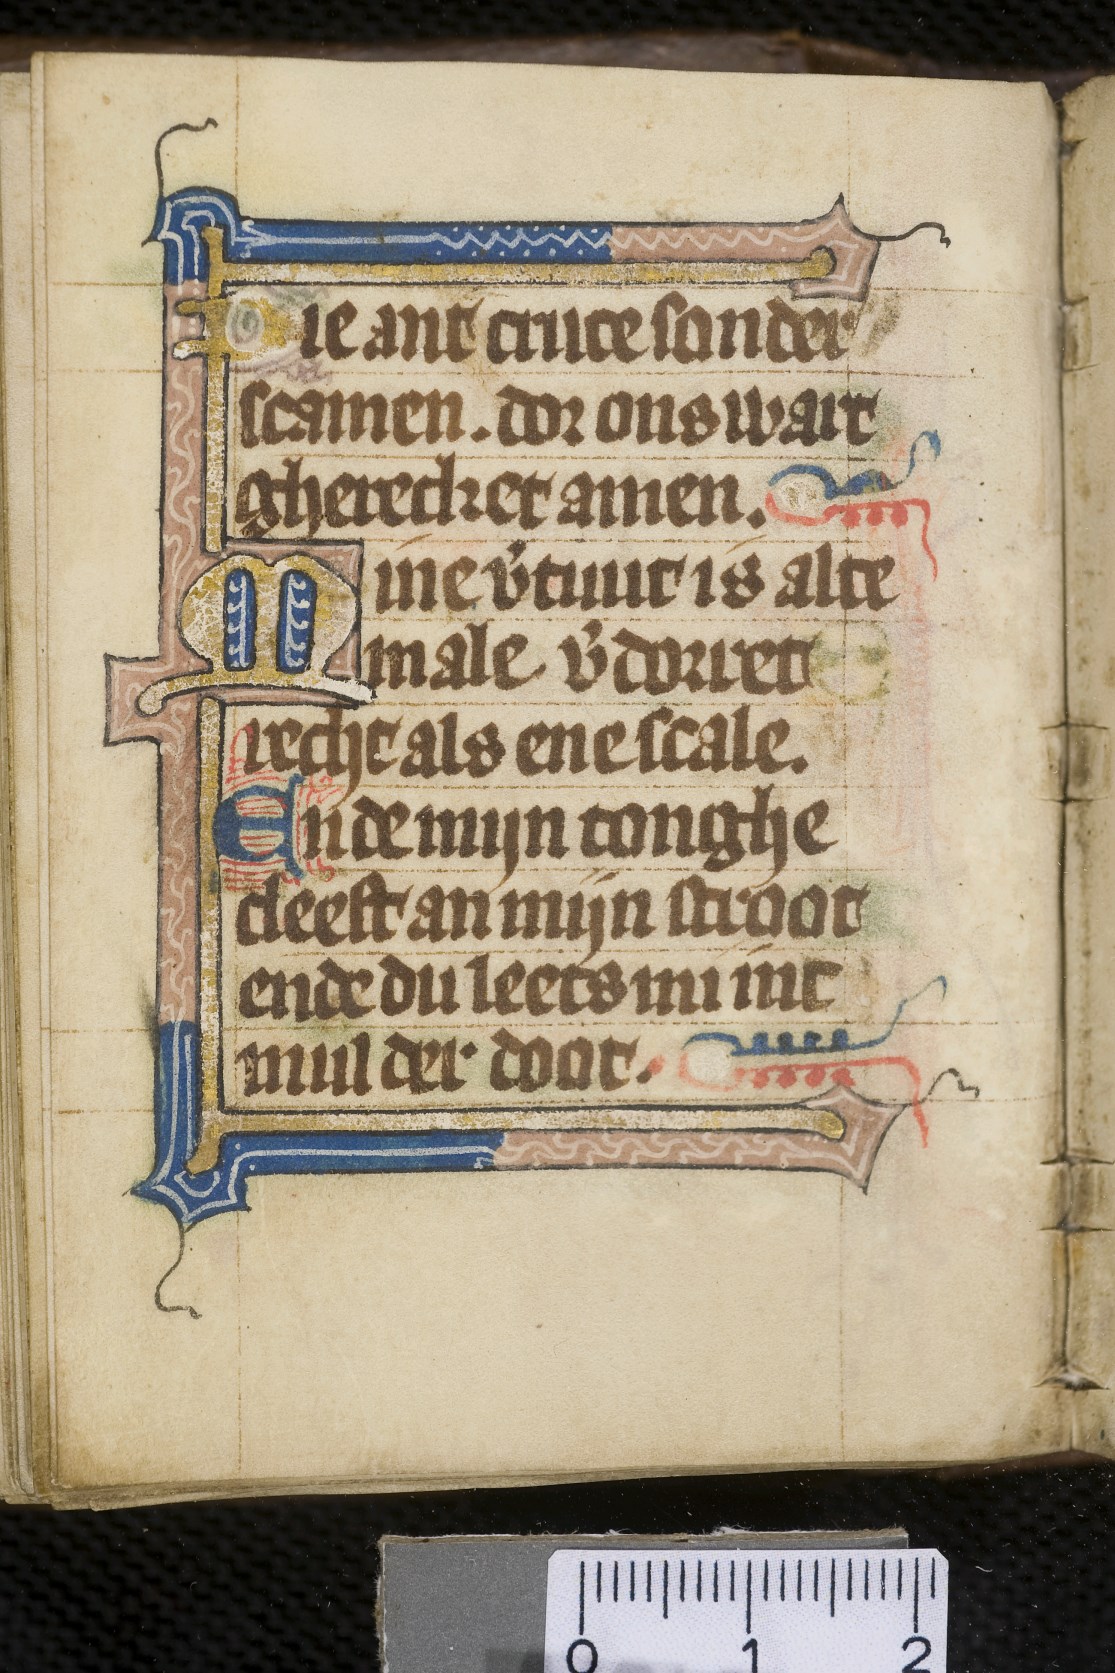 Die ant cruce sonder
scamen. dor ons wart
gherecket amen.
Mine v̄tuut is alte
male v̄dorret
recht als ene scale.
Ende mijn tonghe
cleeft an mijn stroot
ende du leets mi int
mul der doot.
0 1 2